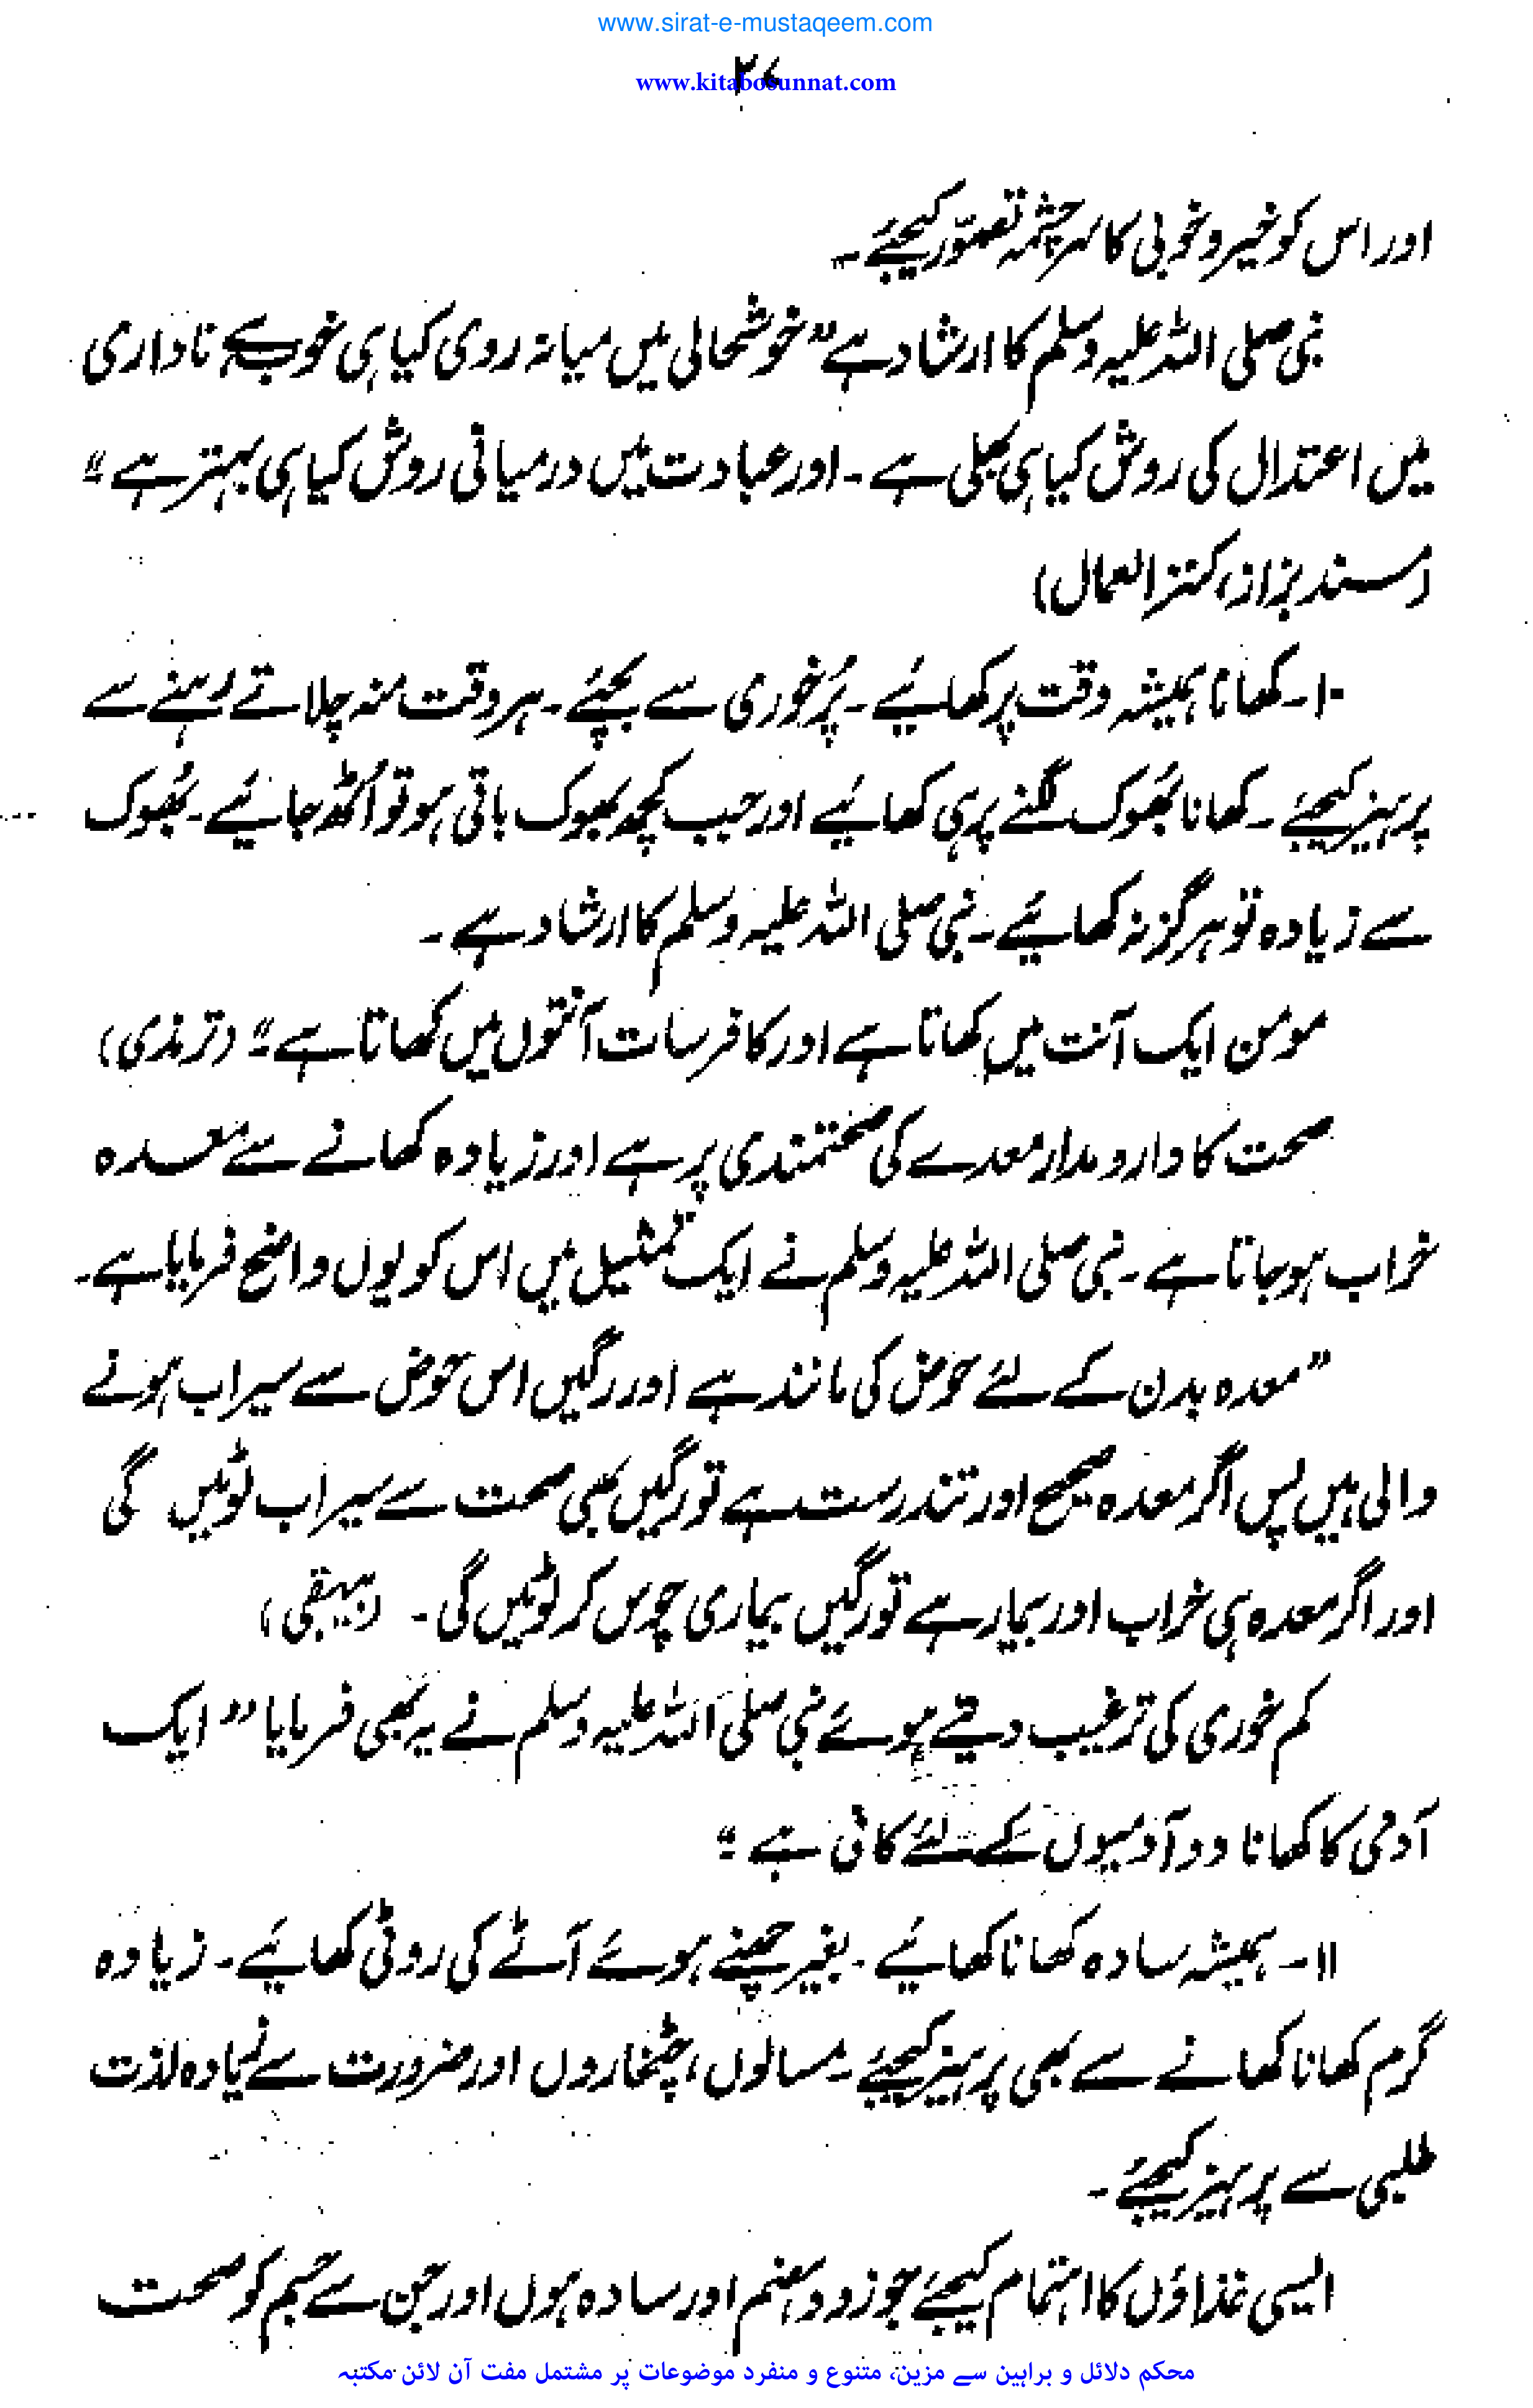 www.sirat-e-mustaqeem.com
۲۷
www.kitabosunnat.com
اور اس کو خیر و خوبی کا سرچشمہ تصوّر کیجئے۔
نبی صلی اللہ علیہ وسلم کا ارشاد ہے ”خوشحالی میں میانہ روی کیا ہی خوب ہے، ناداری
میں اعتدال کی روش کیا ہی بھلی ہے۔ اور عبادت میں درمیانی روش کیا ہی بہتر ہے“
(مسند بزاز، کنز العمال)
۱۰۔ کھانا ہمیشہ وقت پر کھائیے۔ پُرخوری سے بچئے۔ ہر وقت منہ چلاتے رہنے سے
پرہیز کیجئے۔ کھانا بھُوک لگنے پر ہی کھائیے اور جب کچھ بھوک باقی ہو تو اُٹھ جائیے۔ بھُوک
سے زیادہ تو ہرگز نہ کھائیے۔ نبی صلی اللہ علیہ وسلم کا ارشاد ہے۔
مومن ایک آنت میں کھاتا ہے اور کافر سات آنتوں میں کھاتا ہے۔“ (ترمذی)
صحت کا دارو مدار معدے کی صحتمندی پر ہے اور زیادہ کھانے سے معدہ
خراب ہو جاتا ہے۔ نبی صلی اللہ علیہ وسلم نے ایک تمثیل میں اس کو یوں واضح فرمایا ہے۔
”معدہ بدن کے لئے حوض کی مانند ہے اور رگیں اس حوض سے سیراب ہونے
والی ہیں پس اگر معدہ صحیح اور تندرست ہے تو رگیں بھی صحت سے سیراب لوٹیں گی
اور اگر معدہ ہی خراب اور بیمار ہے تو رگیں بیماری چوس کر لوٹیں گی۔ (بیہقی)
کم خوری کی ترغیب دیتے ہوئے نبی صلی اللہ علیہ وسلم نے یہ بھی فرمایا ”ایک
آدمی کا کھانا دو آدمیوں کے لئے کافی ہے“
۱۱۔ ہمیشہ سادہ کھانا کھائیے۔ بغیر چھنے ہوئے آٹے کی روٹی کھائیے۔ زیادہ
گرم کھانا کھانے سے بھی پرہیز کیجئے۔ مسالوں، چٹخاروں اور ضرورت سے زیادہ لذت
طلبی سے پرہیز کیجئے۔
ایسی غذاؤں کا اہتمام کیجئے جو زود ہضم اور سادہ ہوں اور جن سے جسم کو صحت
محکم دلائل و براہین سے مزین، متنوع و منفرد موضوعات پر مشتمل مفت آن لائن مکتبہ